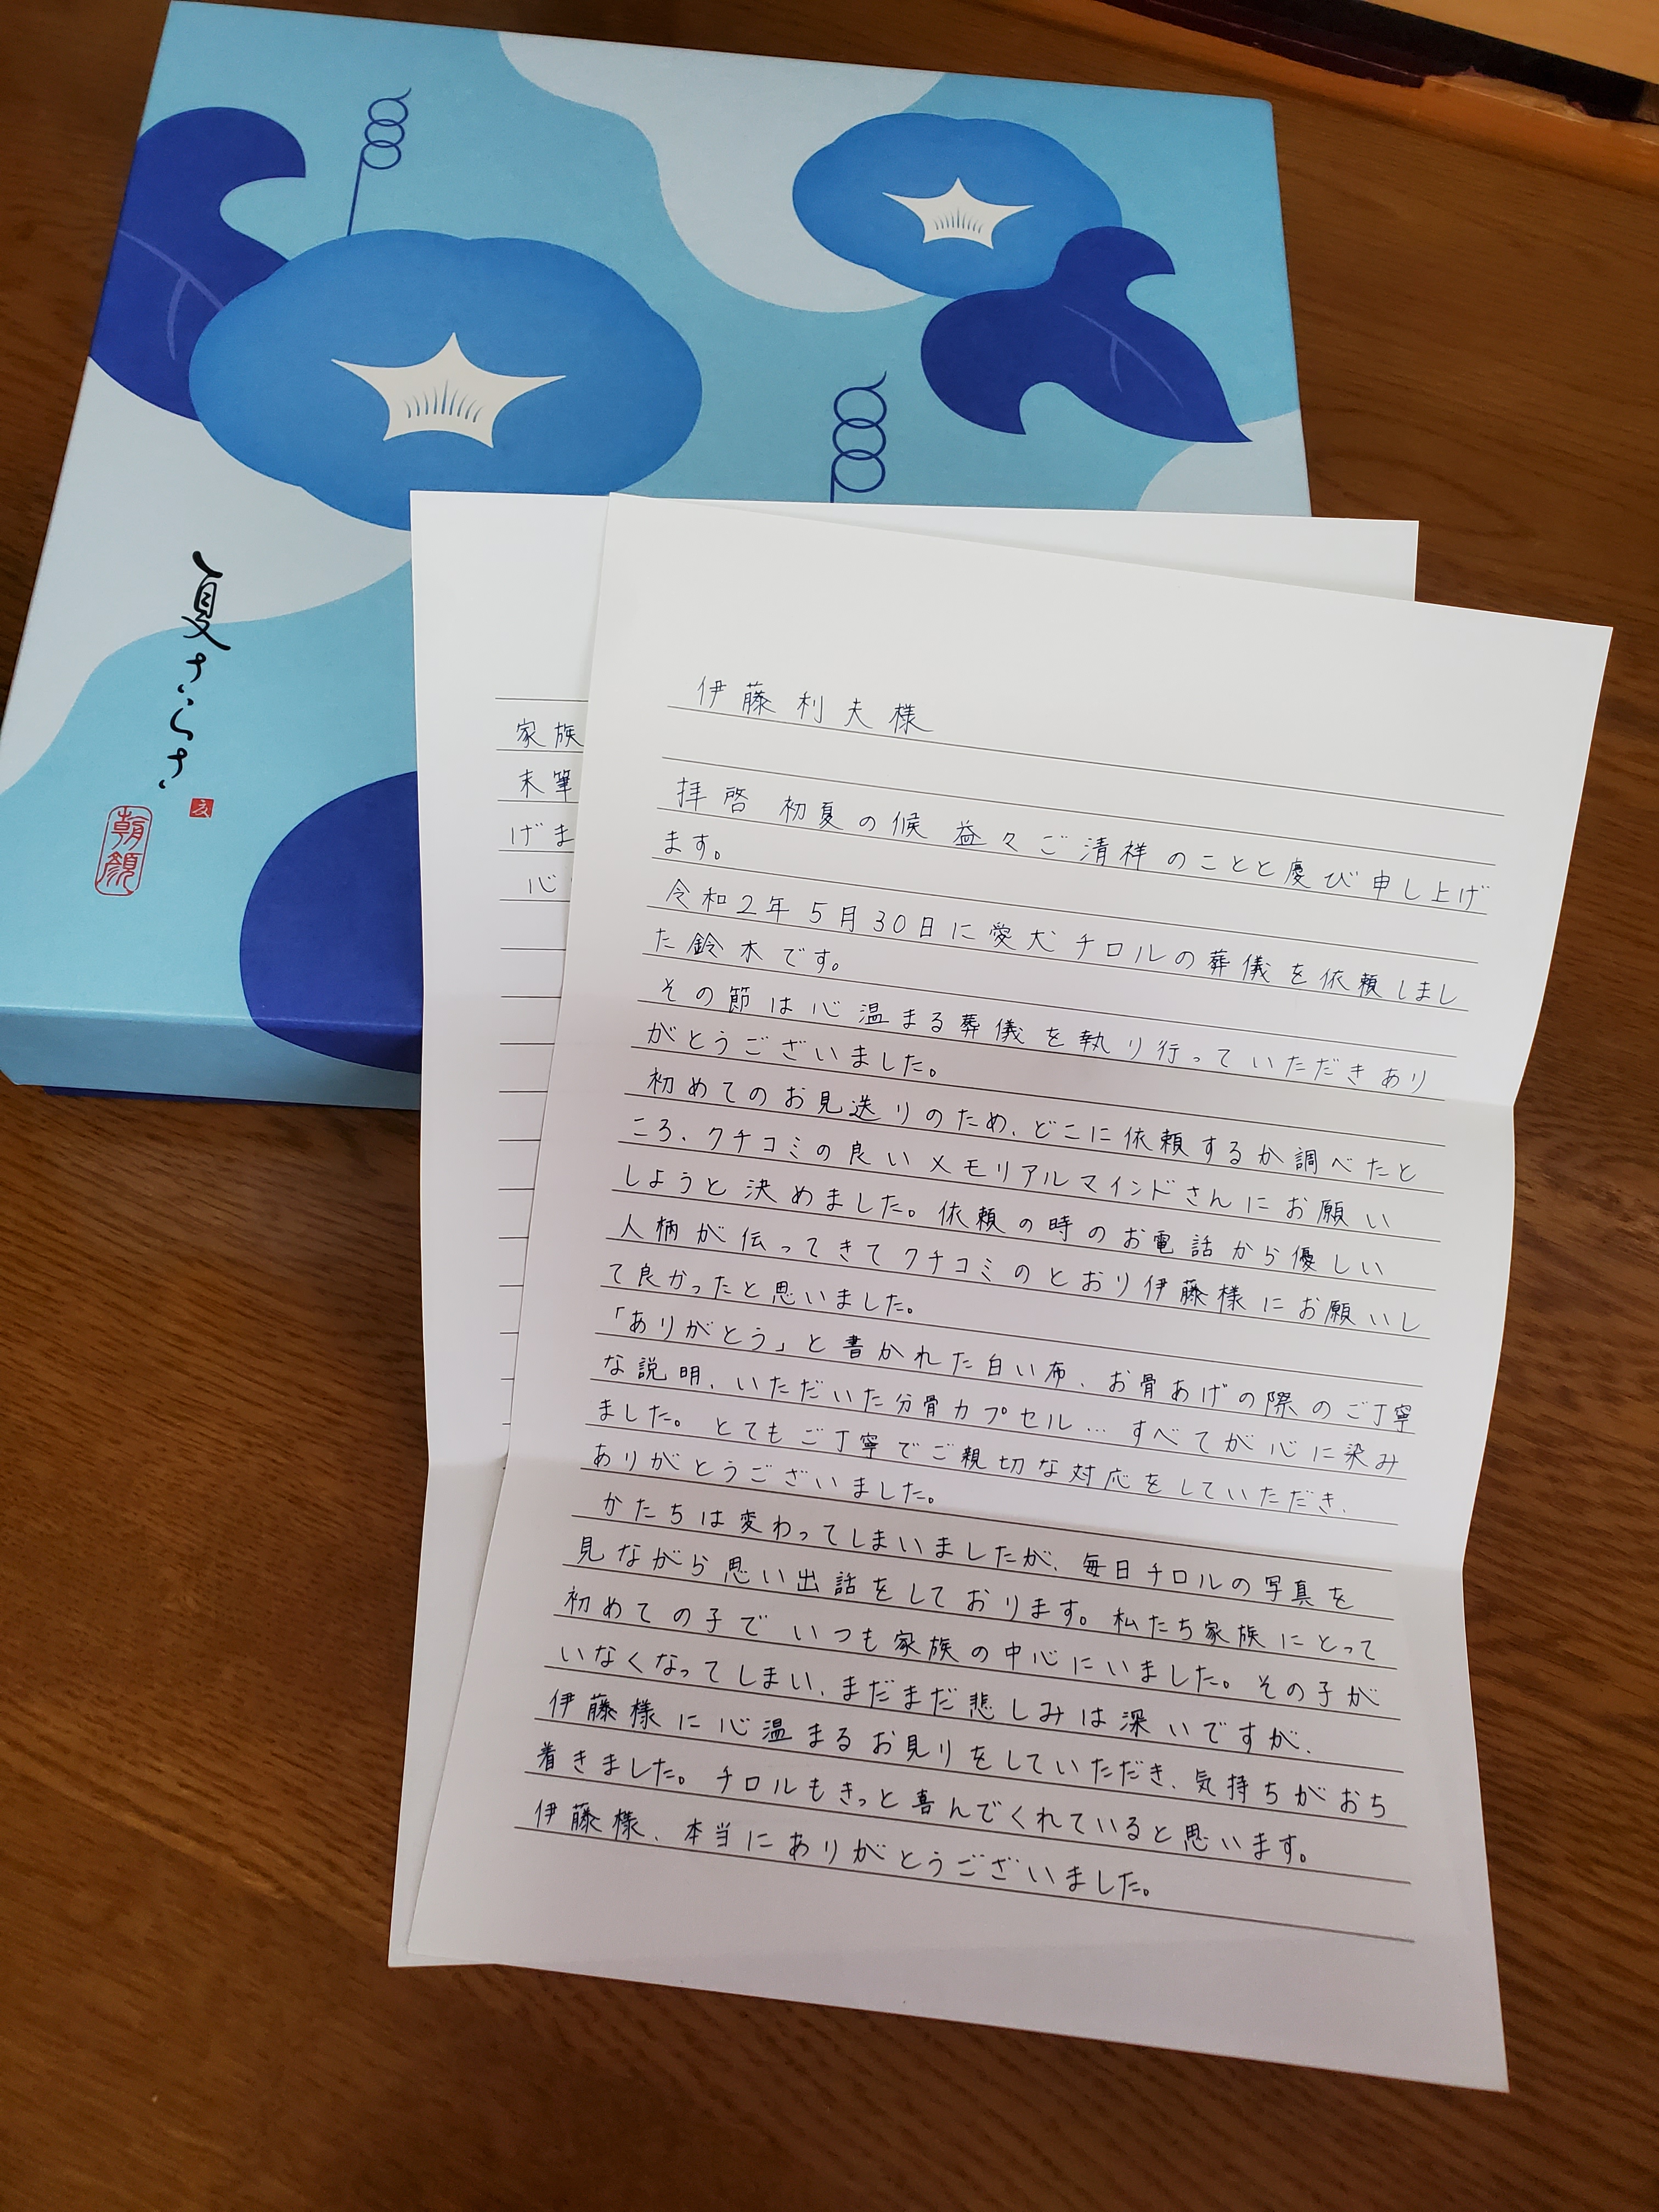 夏さらさ
朝顔
家族
末筆
げま
心
伊藤利夫様
拝啓 初夏の候 益々ご清祥のことと慶び申し上げ
ます。
令和2年5月30日に愛犬チロルの葬儀を依頼しまし
た鈴木です。
その節は心温まる葬儀を執り行っていただきあり
がとうございました。
初めてのお見送りのため、どこに依頼するか調べたと
ころ、クチコミの良いメモリアルマインドさんにお願い
しようと決めました。依頼の時のお電話から優しい
人柄が伝ってきてクチコミのとおり伊藤様にお願いし
て良かったと思いました。
「ありがとう」と書かれた白い布、お骨あげの際のご丁寧
な説明、いただいた分骨カプセル…すべてが心に染み
ました。とてもご丁寧でご親切な対応をしていただき、
ありがとうございました。
かたちは変わってしまいましたが、毎日チロルの写真を
見ながら思い出話をしております。私たち家族にとって
初めての子でいつも家族の中心にいました。その子が
いなくなってしまい、まだまだ悲しみは深いですが、
伊藤様に心温まるお見りをしていただき、気持ちがおち
着きました。チロルもきっと喜んでくれていると思います。
伊藤様、本当にありがとうございました。